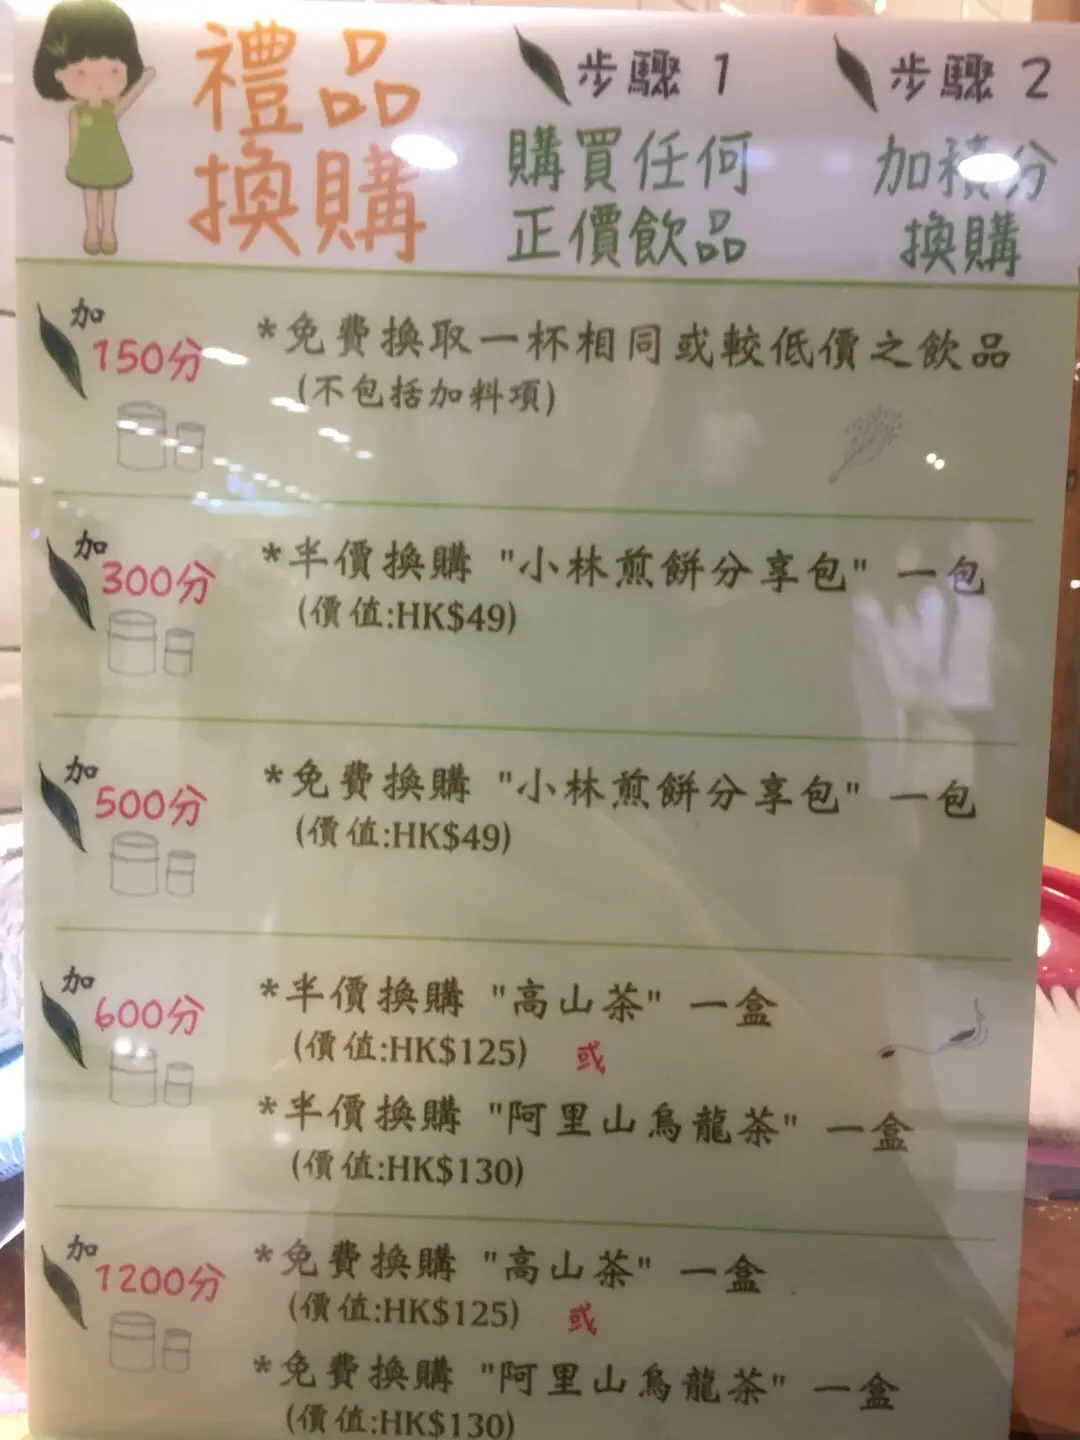 禮品
換購
步驟 1
購買任何
正價飲品
步驟 2
加積分
換購
加
150分
*免費換取一杯相同或較低價之飲品
(不包括加料項)
加
300分
*半價換購 "小林煎餅分享包" 一包
(價值:HK$49)
加
500分
*免費換購 "小林煎餅分享包" 一包
(價值:HK$49)
加
600分
*半價換購 "高山茶" 一盒
(價值:HK$125) 或
*半價換購 "阿里山烏龍茶" 一盒
(價值:HK$130)
加
1200分
*免費換購 "高山茶" 一盒
(價值:HK$125) 或
*免費換購 "阿里山烏龍茶" 一盒
(價值:HK$130)